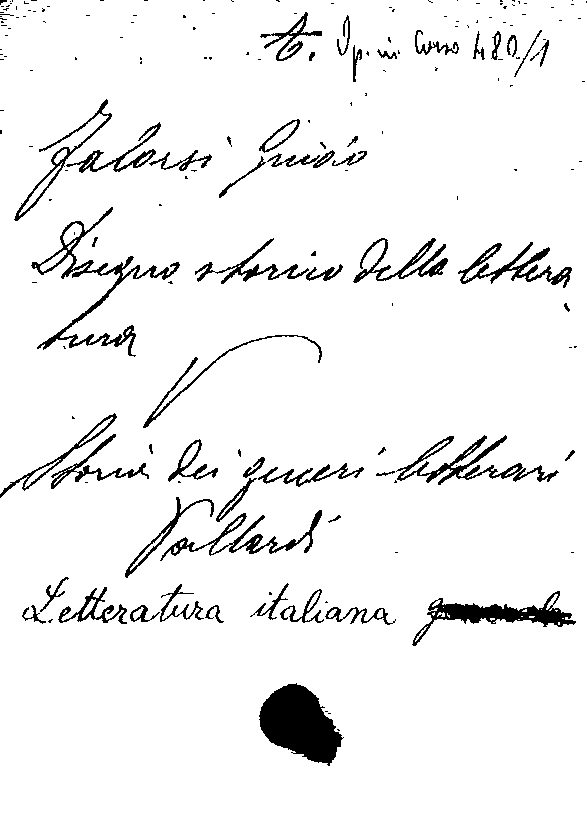 t. Op. in Corso 480/1
Falorsi Guido
Disegno storico della lettera
tura
V
Storia dei generi letterari
Vallardi
Letteratura italiana